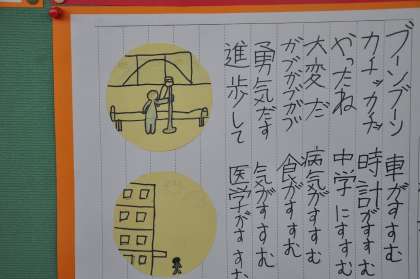 ブーンブーン 車がすすむ
カチッカチッ 時計がすすむ
やったね 中学にすすむ
大変だ 病気がすすむ
ガブガブガブ 食がすすむ
勇気だす 気がすすむ
進歩して 医学がすすむ